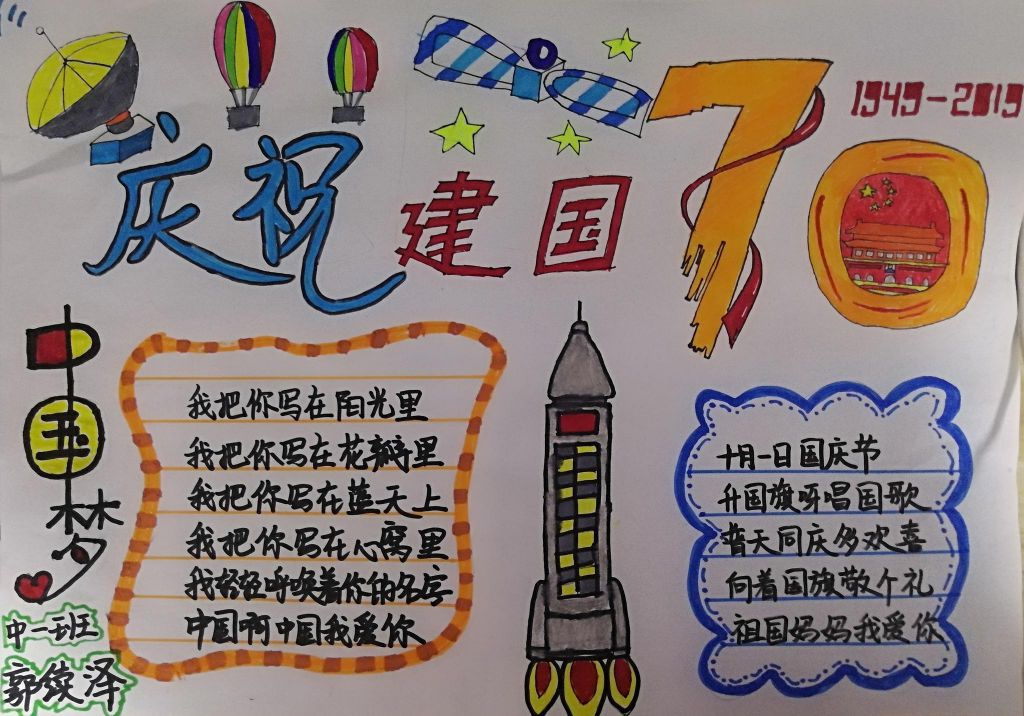 庆祝建国70
1949-2019
中国梦
我把你写在阳光里
我把你写在花瓣里
我把你写在蓝天上
我把你写在心窝里
我轻轻呼唤着你的名字
中国啊中国我爱你
十月一日国庆节
升国旗呀唱国歌
普天同庆多欢喜
向着国旗敬个礼
祖国妈妈我爱你
中一班
郭续泽